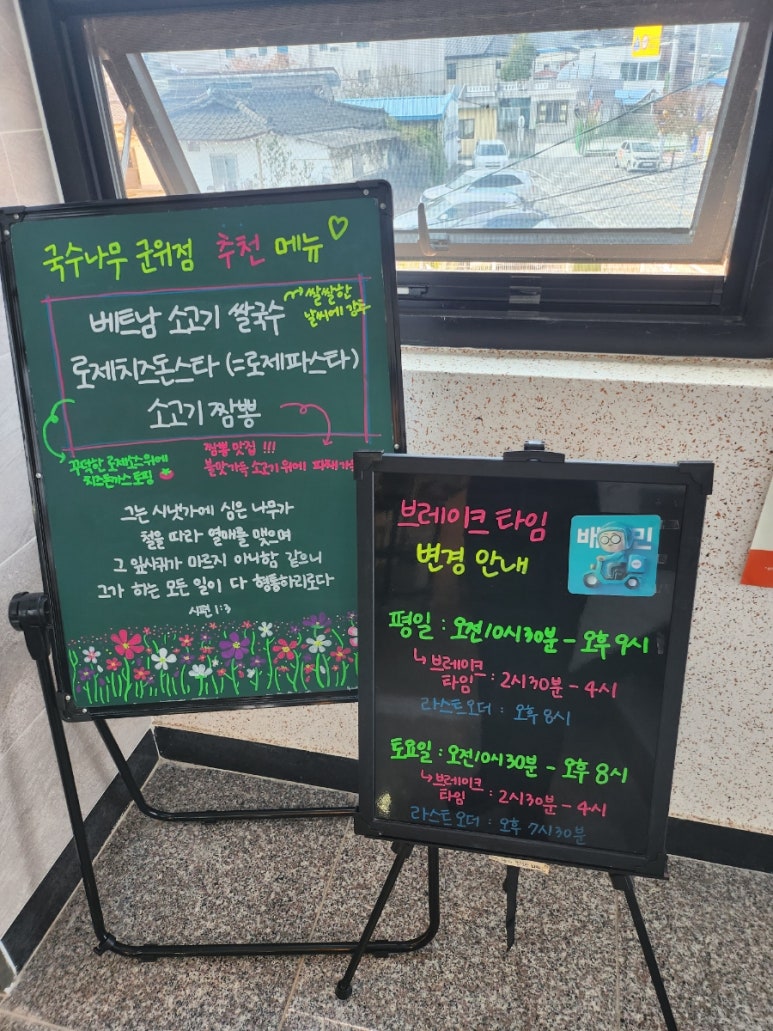 국수나무 군위점 추천 메뉴
베트남 소고기 쌀국수
쌀쌀한
날씨에 감동
로제치즈돈스타 (=로제파스타)
소고기 짬뽕
꾸덕한 로제소스위에
치즈돈까스 토핑
짬뽕 맛집 !!!
불맛가득 소고기 위에 파채
그는 시냇가에 심은 나무가
철을 따라 열매를 맺으며
그 잎사귀가 마르지 아니함 같으니
그가 하는 모든 일이 다 형통하리로다
시편 1:3
브레이크 타임
변경 안내
배 민
평일 : 오전10시30분 - 오후 9시
↳ 브레이크
타임 : 2시30분 - 4시
라스트오더 : 오후 8시
토요일 : 오전10시30분 - 오후 8시
↳ 브레이크
타임 : 2시30분 - 4시
라스트오더 : 오후 7시30분